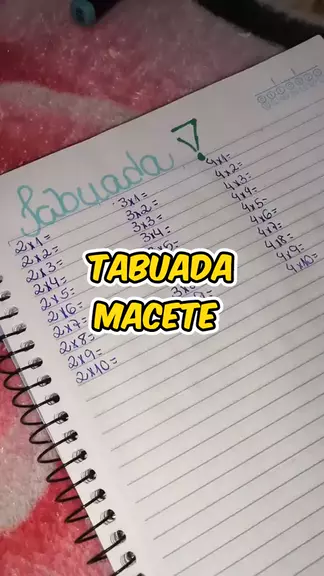 Tabuada !
2x1=
2x2=
2x3=
2x4=
2x5=
2x6=
2x7=
2x8=
2x9=
2x10=
3x1=
3x2=
3x3=
3x4=
4x1=
4x2=
4x3=
4x4=
4x5=
4x6=
4x7=
4x8=
4x9=
4x10=
TABUADA
MACETE